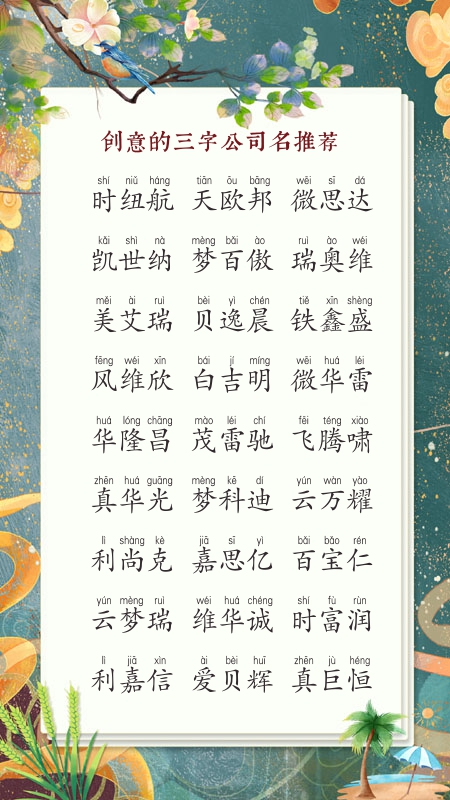 创意的三字公司名推荐
shí niǔ háng tiān ōu bāng wēi sī dá
时纽航 天欧邦 微思达
kǎi shì nà mèng bǎi ào ruì ào wéi
凯世纳 梦百傲 瑞奥维
měi ài ruì bèi yì chén tiě xīn shèng
美艾瑞 贝逸晨 铁鑫盛
fēng wéi xīn bái jí míng wēi huá léi
风维欣 白吉明 微华雷
huá lóng chāng mào léi chí fēi téng xiào
华隆昌 茂雷驰 飞腾啸
zhēn huá guāng mèng kē dí yún wàn yào
真华光 梦科迪 云万耀
lì shàng kè jiā sī yì bǎi bǎo rén
利尚克 嘉思亿 百宝仁
yún mèng ruì wéi huá chéng shí fù rùn
云梦瑞 维华诚 时富润
lì jiā xìn ài bèi huī zhēn jù héng
利嘉信 爱贝辉 真巨恒